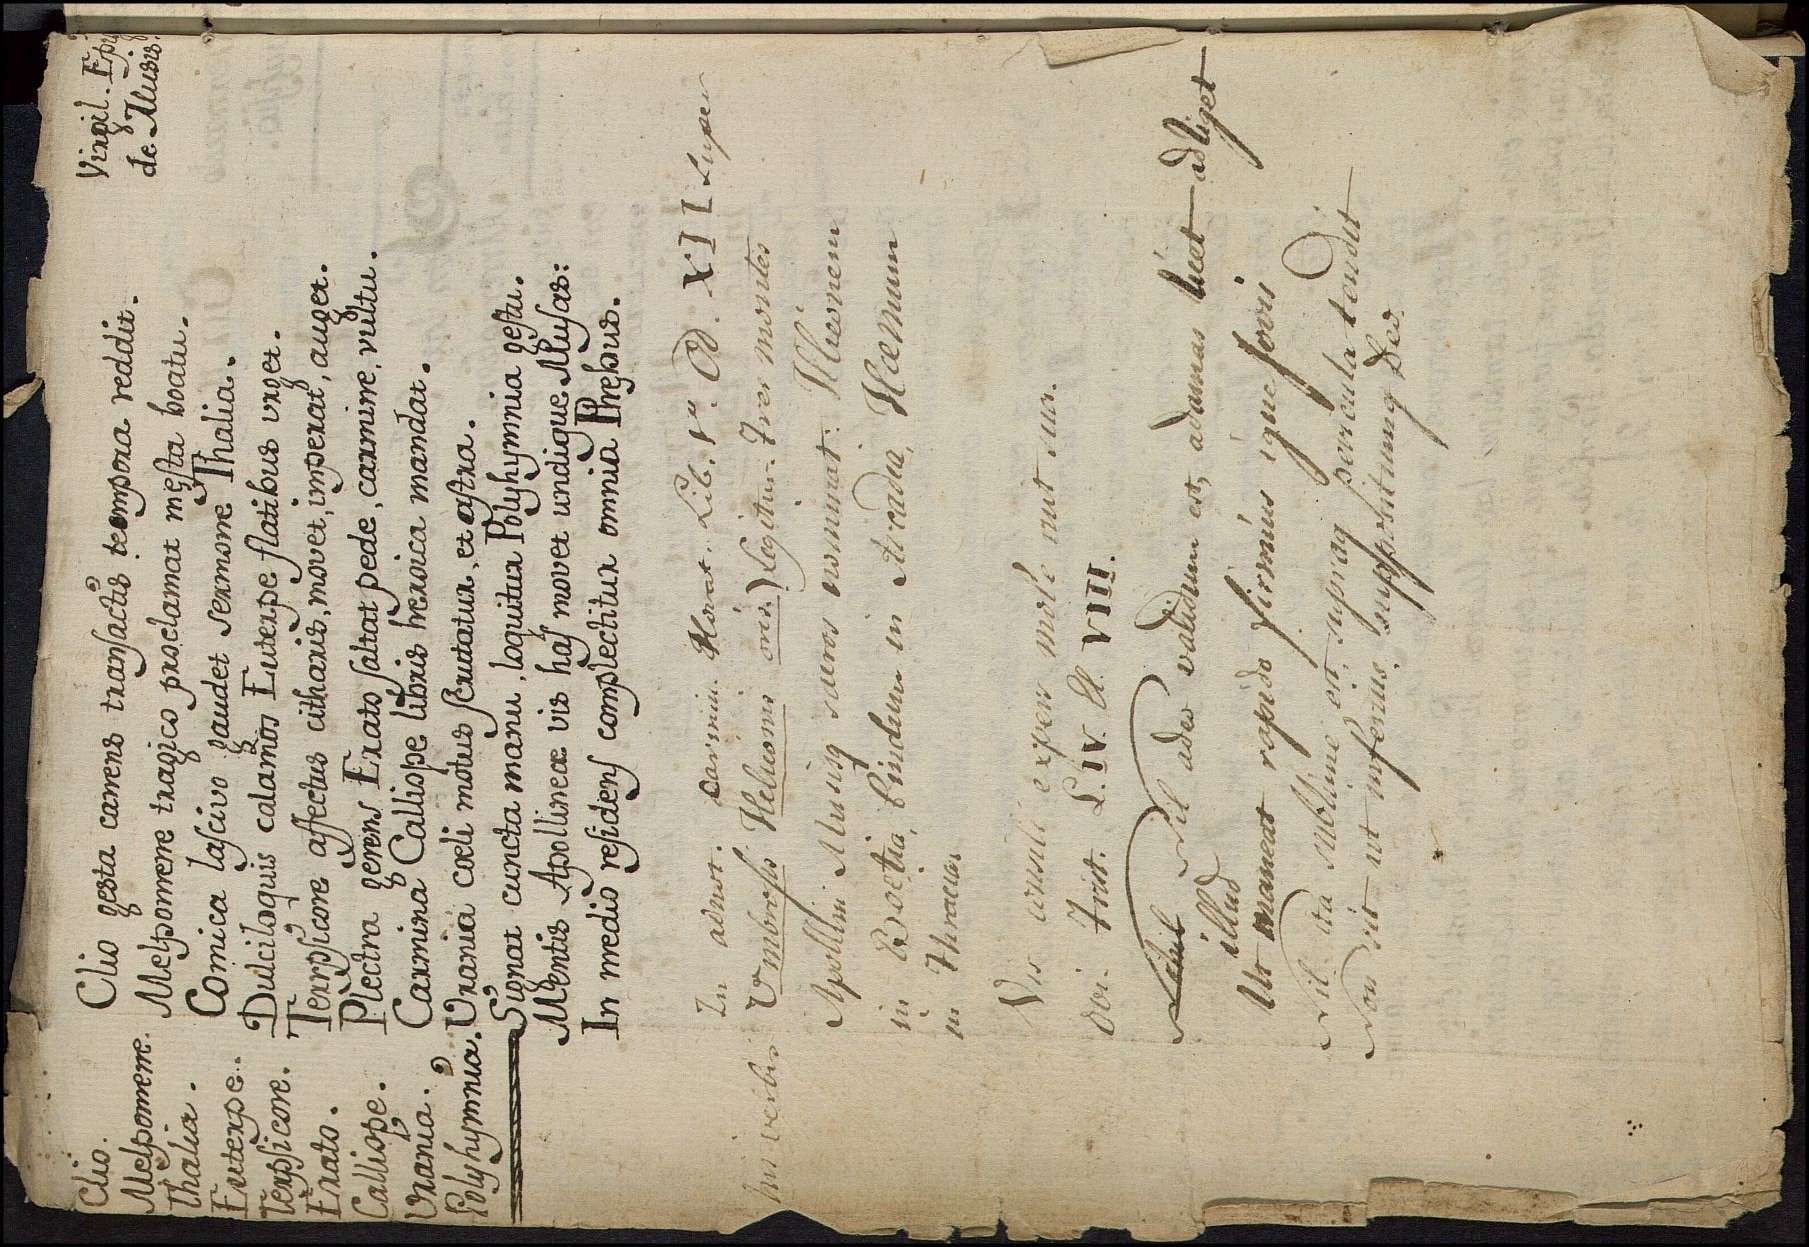 Virgil. Epig
de Musis.
Clio. Clio gesta canens transactis tempora reddit.
Melpomene. Melpomene tragico proclamat męsta boatu.
Thalia. Comica lascivo gaudet sermone Thalia.
Euterpe. Dulciloquis calamos Euterpe flatibus urget.
Terpsicore. Terpsicore affectus citharis, movet, imperat, auget.
Erato. Plectra gerens Erato saltat pede, carmine, vultu.
Calliope. Carmina Calliope libris heroica mandat.
Urania. Urania coeli motus scrutatur, et astra.
Polyhymnia. Signat cuncta manu, loquitur Polyhymnia gestu.
Mentis Apollineæ vis has movet undique Musas:
In medio residens complectitur omnia Phębus.
In adnot. Carmin. Horat. Lib. Vr. Od. XII super
his verbis Umbrosis Heliconis oris) legitur. Tres montes
Apollini Musisq sacros nominat: Heliconem
in Boetia, Pindum in Arcadia, Hæmum
in Thracia
Vis consili expers mole ruit sua.
Ovi. Trist. L. IV. El. VIII.
Nihil Nil adeo validum est, adamas licet adliget
illud
Ut maneat rapido firmius igne Jovis
Nil ita sublime est, supraq pericula tendit
Non sit ut inferius, suppositumq Deo.